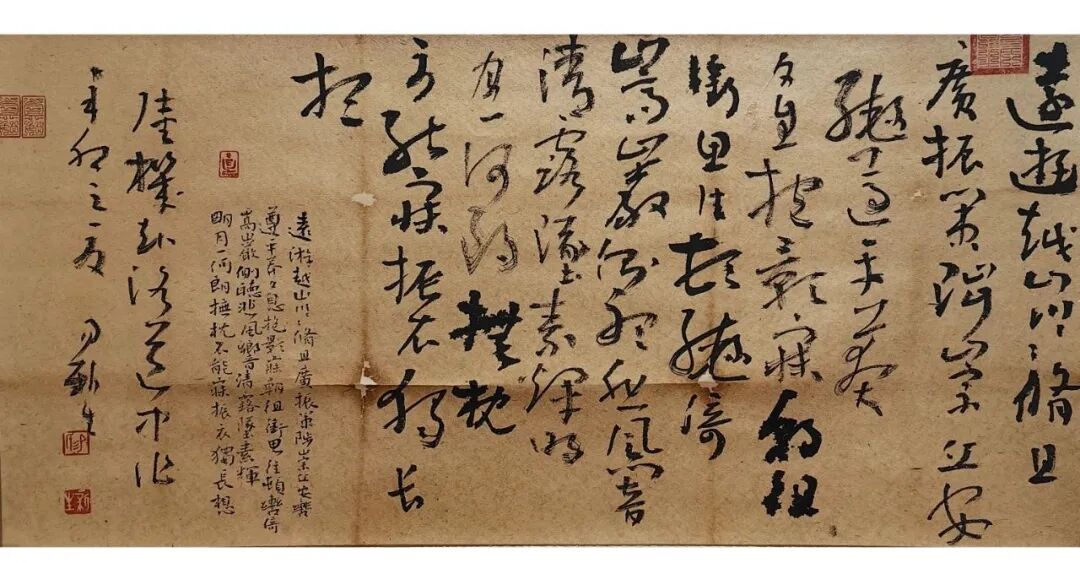 遠遊越山川〻脩且
廣振策陟崇丘安
轡遵平莽
夕息抱影寐朝徂
銜思往頓轡倚
嵩巖側聽悲風響
清露墜素輝明
月一何朗撫枕
不能寐振衣獨長
想
遠游越山川〻脩且廣振策陟崇丘安轡
遵平莽夕息抱影寐朝徂銜思往頓轡倚
嵩巖側聽悲風響清露墜素輝
明月一何朗撫枕不能寐振衣獨長想
陸機赴洛道中作
辛卯之夏新生
新生